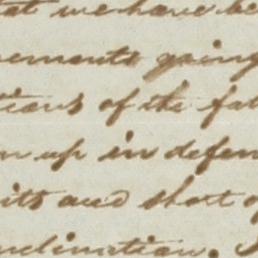 at we have be
ements going
tians of the fat
n up in defen
its and short o
nclination.